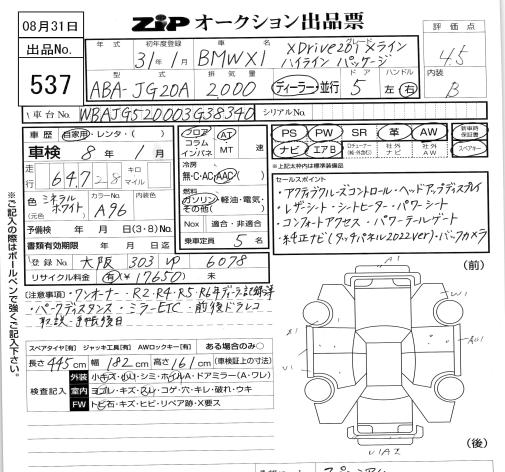 08月31日
ZIP オークション出品票
出品No.
537
年式
初年度登録
31年1月
車名
BMWX1
グレード
XDrive20i Xライン
ハイライン パッケージ
評価点
4.5
型式
ABA-JG20A
排気量
2000
ディーラー・並行
ドア
5
ハンドル
左・右
内装
B
車台No.
WBAJG520003G38340
シリアルNo.
車歴
自家用・レンタ・( )
車検 8年 1月
走行
64.7
キロ
マイル
色
(元色)
ミネラル
ホワイト
カラーNo.
A96
内装色
予備検 年 月 日(3・8)No.
書類有効期限 年 月 日迄
登録No. 大阪 303 ゆ 6078
リサイクル料金 有(¥17650)無
フロア
コラム
インパネ
AT
MT
速
冷房
無・C・AC・AAC( )
燃料
ガソリン・軽油・電気・
その他( )
Nox 適合・非適合
乗車定員 5 名
PS PW SR 革 AW
新車時
保証書
ナビ エアB
社外
ナビ
社外
AW
スペアキー
※上記太枠内は標準装備品
セールスポイント
・アクティブクルーズコントロール・ヘッドアップディスプレイ
・レザーシート・シートヒーター・パワーシート
・コンフォートアクセス・パワーテールゲート
・純正ナビ(タッチパネル2022ver)・バックカメラ
[注意事項]・ワンオーナー・R2・R4・R5・R6年ディーラー記録簿
・パークディスタンス・ミラーETC・前後ドラレコ
取説
スペアタイヤ[有] ジャッキ工具[有] AWロックキー[有] ある場合のみ○
長さ 445cm 幅 182cm 高さ 161cm (車検証上の寸法)
検査記入
外装 小キズ・小U・シミ・ホイルA・ドアミラー(A・ワレ)
室内 ヨゴレ・キズ・スレ・コゲ・穴・キレ・破れ・ウキ
FW トビ石・キズ・ヒビ・リペア跡・X要ス
(前)
A1
(後)
※ご記入の際はボールペンで強くご記入下さい。